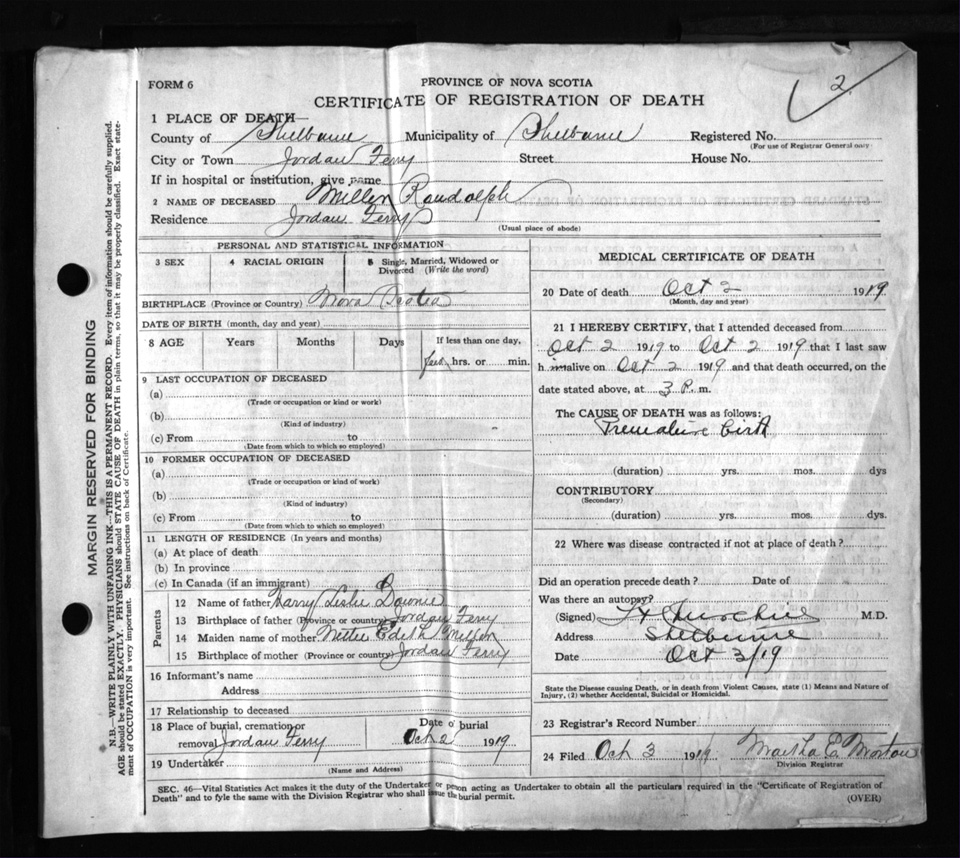 2
FORM 6
PROVINCE OF NOVA SCOTIA
CERTIFICATE OF REGISTRATION OF DEATH
1 PLACE OF DEATH—
County of Shelburne Municipality of Shelburne Registered No.
(For use of Registrar General only)
City or Town Jordan Ferry Street House No.
If in hospital or institution, give name
2 NAME OF DECEASED Millen Randolph
Residence Jordan Ferry
(Usual place of abode)
PERSONAL AND STATISTICAL INFORMATION
3 SEX 4 RACIAL ORIGIN 5 Single, Married, Widowed or Divorced (Write the word)
BIRTHPLACE (Province or Country) Nova Scotia
DATE OF BIRTH (month, day and year)
8 AGE Years Months Days If less than one day,
few hrs. or min.
9 LAST OCCUPATION OF DECEASED
(a)
(Trade or occupation or kind or work)
(b)
(Kind of industry)
(c) From to
(Date from which to which so employed)
10 FORMER OCCUPATION OF DECEASED
(a)
(Trade or occupation or kind of work)
(b)
(Kind of industry)
(c) From to
(Date from which to which so employed)
11 LENGTH OF RESIDENCE (In years and months)
(a) At place of death
(b) In province
(c) In Canada (if an immigrant)
Parents
12 Name of father Harry Leslie Downie
13 Birthplace of father (Province or country) Jordan Ferry
14 Maiden name of mother Edith
15 Birthplace of mother (Province or country) Jordan Ferry
16 Informant's name
Address
17 Relationship to deceased
18 Place of burial, cremation or removal Jordan Ferry Date of burial Oct 2 1919
19 Undertaker
(Name and Address)
MEDICAL CERTIFICATE OF DEATH
20 Date of death Oct 2 1919
(Month, day and year)
21 I HEREBY CERTIFY, that I attended deceased from
Oct 2 1919 to Oct 2 1919 that I last saw
h im alive on Oct 2 1919 and that death occurred, on the
date stated above, at 3 P. m.
The CAUSE OF DEATH was as follows:
Premature birth
(duration) yrs. mos. dys
CONTRIBUTORY
(Secondary)
(duration) yrs. mos. dys.
22 Where was disease contracted if not at place of death?
Did an operation precede death? Date of
Was there an autopsy?
(Signed) M.D.
Address Shelburne
Date Oct 3/19
State the Disease causing Death, or in death from Violent Causes, state (1) Means and Nature of
Injury, (2) whether Accidental, Suicidal or Homicidal.
23 Registrar's Record Number
24 Filed Oct 3 1919 Martha E. Morton
Division Registrar
SEC. 46—Vital Statistics Act makes it the duty of the Undertaker or person acting as Undertaker to obtain all the particulars required in the "Certificate of Registration of
Death" and to fyle the same with the Division Registrar who shall issue the burial permit.
(OVER)
MARGIN RESERVED FOR BINDING
N.B.—WRITE PLAINLY WITH UNFADING INK—THIS IS A PERMANENT RECORD. Every item of information should be carefully supplied.
AGE should be stated EXACTLY. PHYSICIANS should STATE CAUSE OF DEATH in plain terms, so that it may be properly classified. Exact state-
ment of OCCUPATION is very important. See instructions on back of Certificate.